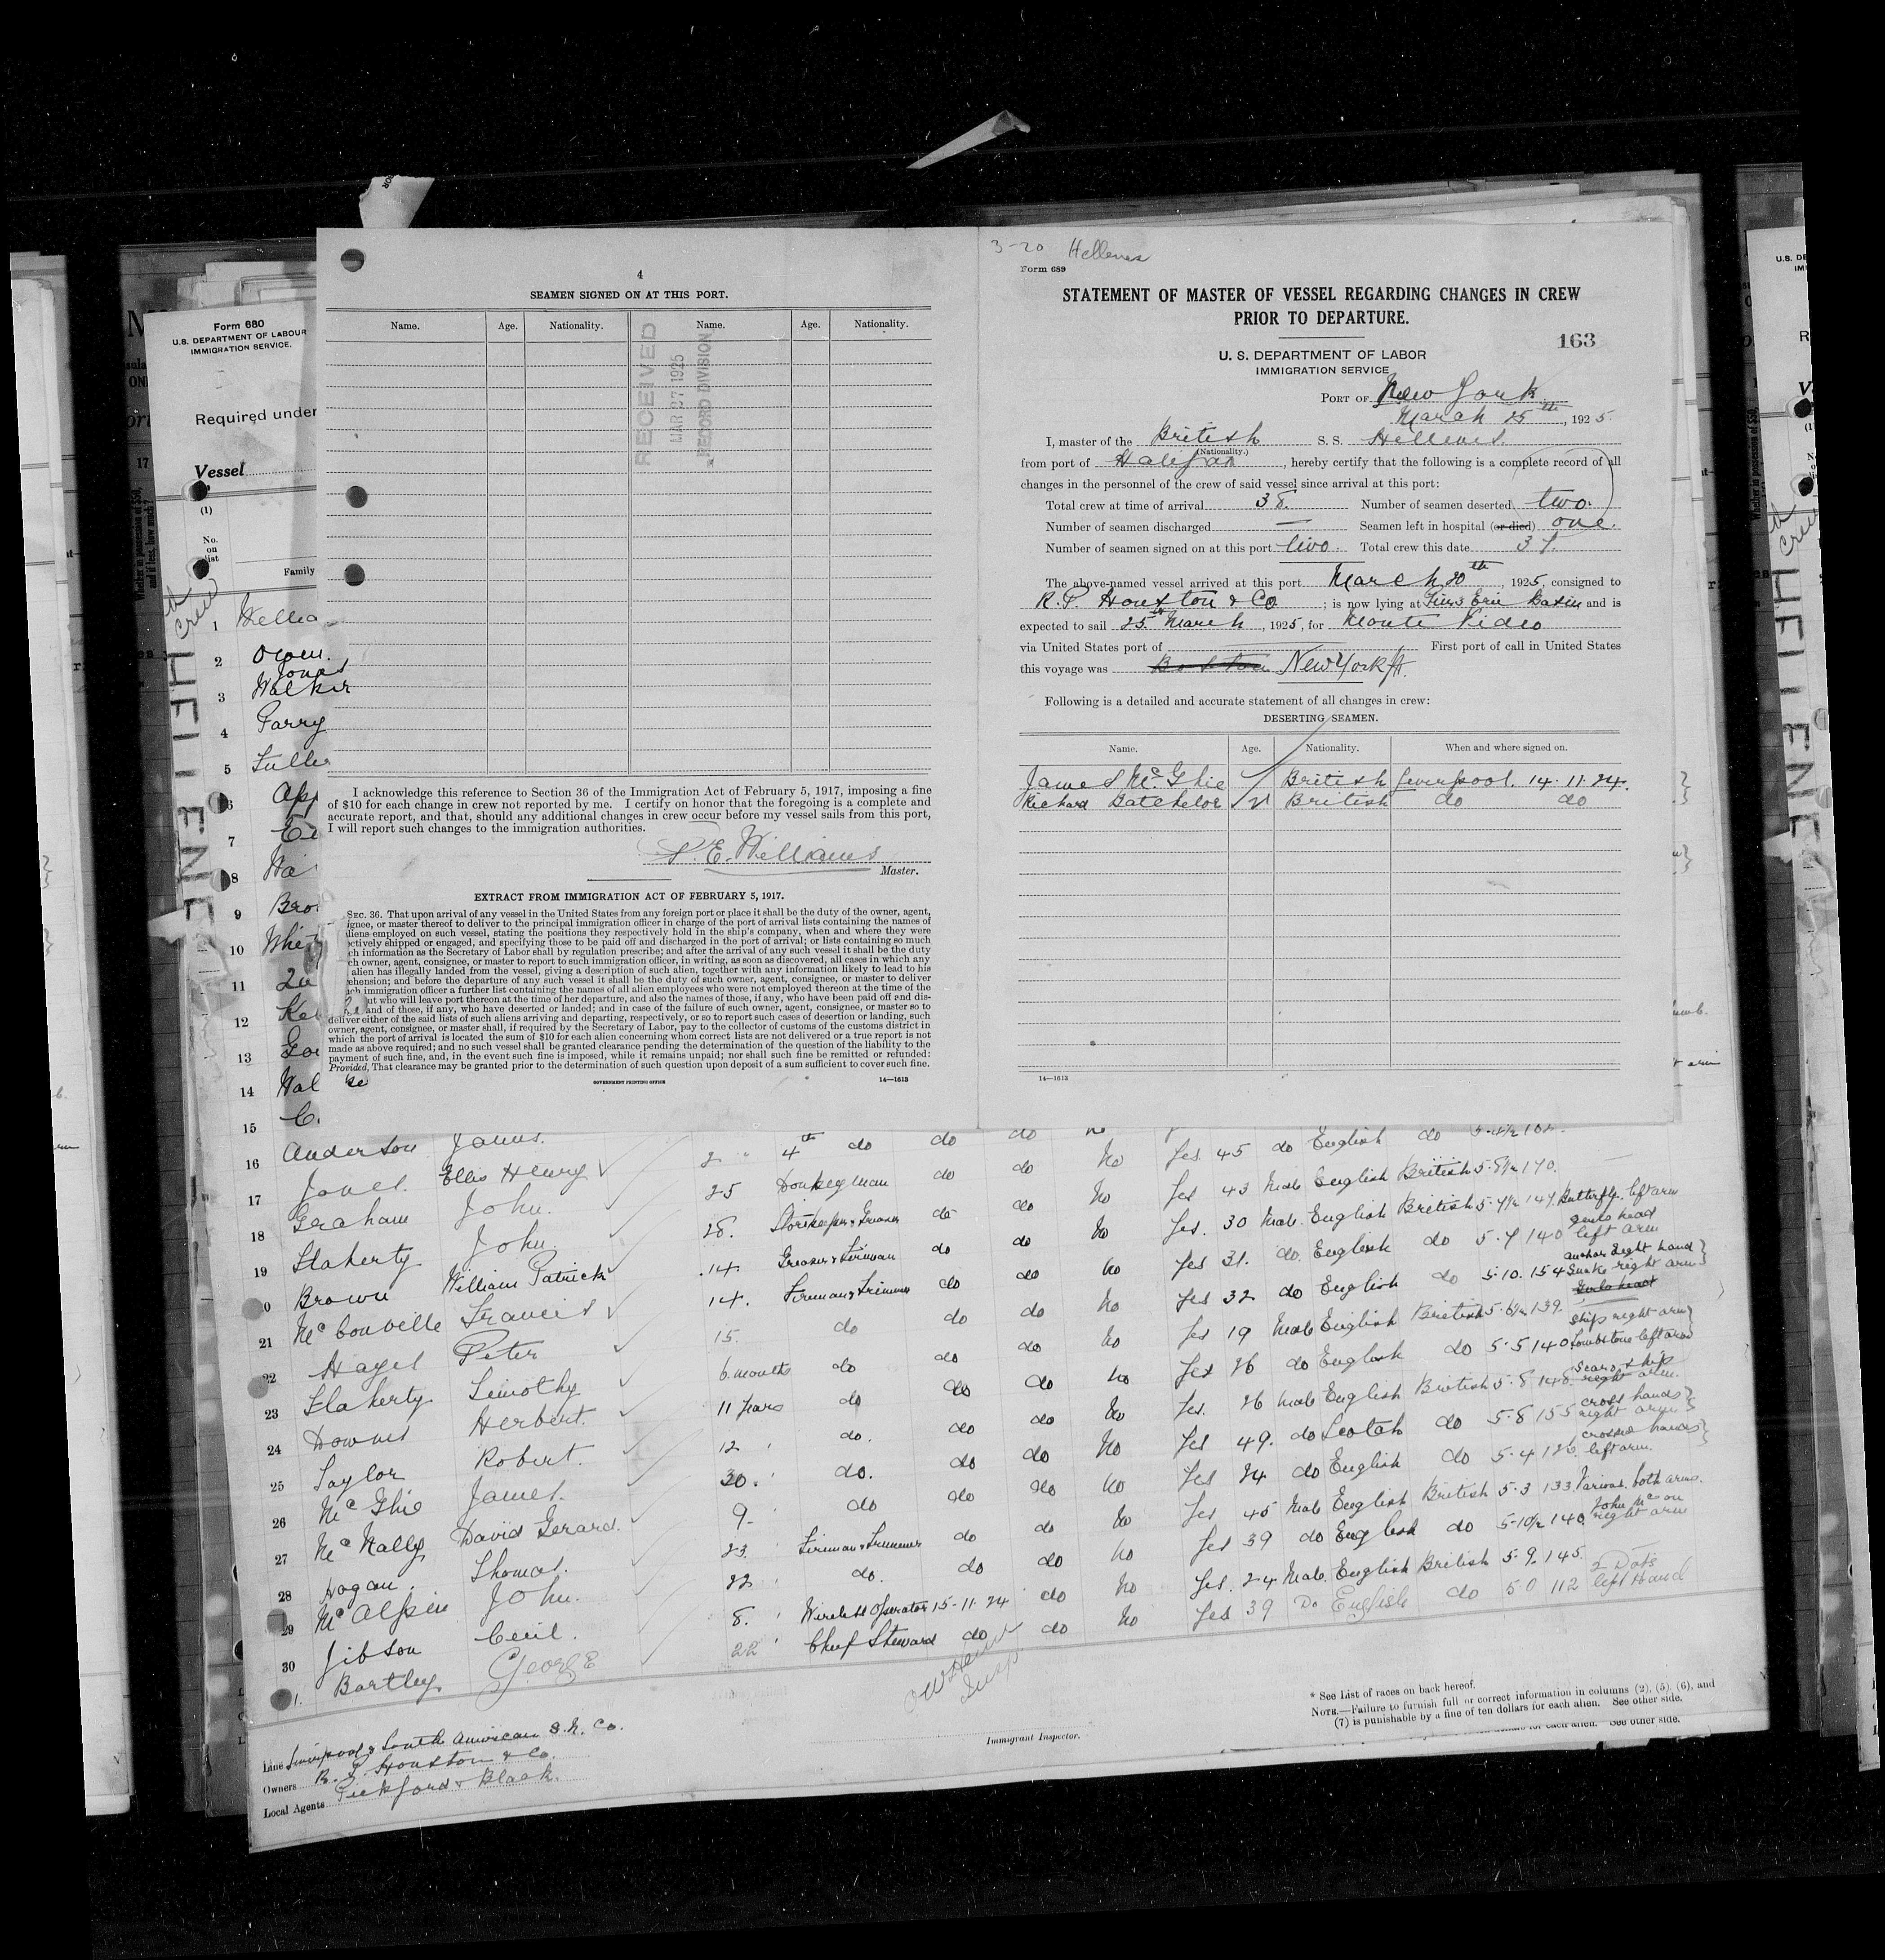 3-20 Hellenes
Form 689
STATEMENT OF MASTER OF VESSEL REGARDING CHANGES IN CREW
PRIOR TO DEPARTURE.
163
U. S. DEPARTMENT OF LABOR
IMMIGRATION SERVICE
PORT OF New York
March 25th, 1925.
I, master of the British S. S. Hellenes
(Nationality.)
from port of Halifax, hereby certify that the following is a complete record of all
changes in the personnel of the crew of said vessel since arrival at this port:
Total crew at time of arrival 38. Number of seamen deserted two.
Number of seamen discharged — Seamen left in hospital (or died) one.
Number of seamen signed on at this port two. Total crew this date 37.
The above-named vessel arrived at this port March 20th, 1925, consigned to
R. P. Houston & Co; is now lying at Pier 3 Erie Basin and is
expected to sail 25th March, 1925, for Monte Video
via United States port of First port of call in United States
this voyage was Boston New York
Following is a detailed and accurate statement of all changes in crew:
DESERTING SEAMEN.
Name. Age. Nationality. When and where signed on.
James McGhie British Liverpool. 14.11.24.
Richard Batchelor 21 British do do
14—1613
4
SEAMEN SIGNED ON AT THIS PORT.
Name. Age. Nationality. Name. Age. Nationality.
RECEIVED
MAR 27 1925
RECORD DIVISION
I acknowledge this reference to Section 36 of the Immigration Act of February 5, 1917, imposing a fine
of $10 for each change in crew not reported by me. I certify on honor that the foregoing is a complete and
accurate report, and that, should any additional changes in crew occur before my vessel sails from this port,
I will report such changes to the immigration authorities.
E. Williams
Master.
EXTRACT FROM IMMIGRATION ACT OF FEBRUARY 5, 1917.
SEC. 36. That upon arrival of any vessel in the United States from any foreign port or place it shall be the duty of the owner, agent,
ignee, or master thereof to deliver to the principal immigration officer in charge of the port of arrival lists containing the names of
liens employed on such vessel, stating the positions they respectively hold in the ship's company, when and where they were
ctively shipped or engaged, and specifying those to be paid off and discharged in the port of arrival; or lists containing so much
ch information as the Secretary of Labor shall by regulation prescribe; and after the arrival of any such vessel it shall be the duty
ch owner, agent, consignee, or master to report to such immigration officer, in writing, as soon as discovered, all cases in which any
alien has illegally landed from the vessel, giving a description of such alien, together with any information likely to lead to his
ehension; and before the departure of any such vessel it shall be the duty of such owner, agent, consignee, or master to deliver
ch immigration officer a further list containing the names of all alien employees who were not employed thereon at the time of the
ut who will leave port thereon at the time of her departure, and also the names of those, if any, who have been paid off and dis-
and of those, if any, who have deserted or landed; and in case of the failure of such owner, agent, consignee, or master so to
deliver either of the said lists of such aliens arriving and departing, respectively, or so to report such cases of desertion or landing, such
owner, agent, consignee, or master shall, if required by the Secretary of Labor, pay to the collector of customs of the customs district in
which the port of arrival is located the sum of $10 for each alien concerning whom correct lists are not delivered or a true report is not
made as above required; and no such vessel shall be granted clearance pending the determination of the question of the liability to the
payment of such fine, and, in the event such fine is imposed, while it remains unpaid; nor shall such fine be remitted or refunded:
Provided, That clearance may be granted prior to the determination of such question upon deposit of a sum sufficient to cover such fine.
GOVERNMENT PRINTING OFFICE 14—1613
Form 680
U.S. DEPARTMENT OF LABOUR
IMMIGRATION SERVICE.
Required under
Vessel
(1)
No. on list
Family
HELLENE
crew
1 Willia
2 Owen
Jones
3 Walker
4 Parry
5 Fulle
6 App
7
8 Wa
9 Bro
10 Whit
11
12 Ke
13 Go
14 Wal
15 C
16 Anderson James. 2 4th do do do No Yes 45 do English do
17 Jones. Ellis Henry 25 Donkeyman do do No Yes 43 Male English British 5.8½ 170.
18 Graham John. 28. Storekeeper & Greaser do do No Yes. 30 Male English British 5.7½ 147. Butterfly. left arm
19 Flaherty John 14. Greaser & Fireman do do No Yes 31. do English do 5.7 140 Girls head left arm
20 Brown William Patrick 14. Fireman & Trimmer do do No Yes 32 do English do 5.10. 154 anchor right hand Snake right arm
21 McConville Francis 15. do do do No Yes 19 Male English British 5.6½ 139. Ship right arm
22 Hayes Peter 6 months do do do No Yes 26 do English do 5.5 140 Tombstone left arm
23 Flaherty Timothy 11 Years do do do No Yes. 26 Male English British 5.8 148. Scar & ship right arm
24 Downes Herbert. 12 do. do do No Yes 49. do Scotch do 5.8 155 cross hands right arm
25 Taylor Robert. 20. do. do do No Yes 24 do English do 5.4 126 crossed hands left arm.
26 McGhie James. 9 do do do No Yes 45 Male English British 5.3 133 Various. both arms.
27 McNally David Gerard. 23. Fireman & Trimmer do do No Yes 39 do English do 5.10½ 140 John Mc on right arm
28 Hogan. Thomas. 22 do. do do No Yes. 24 Male. English British 5.9. 145.
29 McAlpin John. 8. Wireless Operator 15-11.24 do No Yes 39 Do English do 5.0 112 2 Dots left Hand
30 Gibson Cecil. 22 Chief Steward do do No
1. Bartley George
Immigrant Inspector.
* See List of races on back hereof.
NOTE.—Failure to furnish full or correct information in columns (2), (5), (6), and
(7) is punishable by a fine of ten dollars for each alien. See other side.
See other side.
Line Liverpool & South American S. N. Co.
Owners R. P. Houston & Co.
Local Agents Pickford & Black.